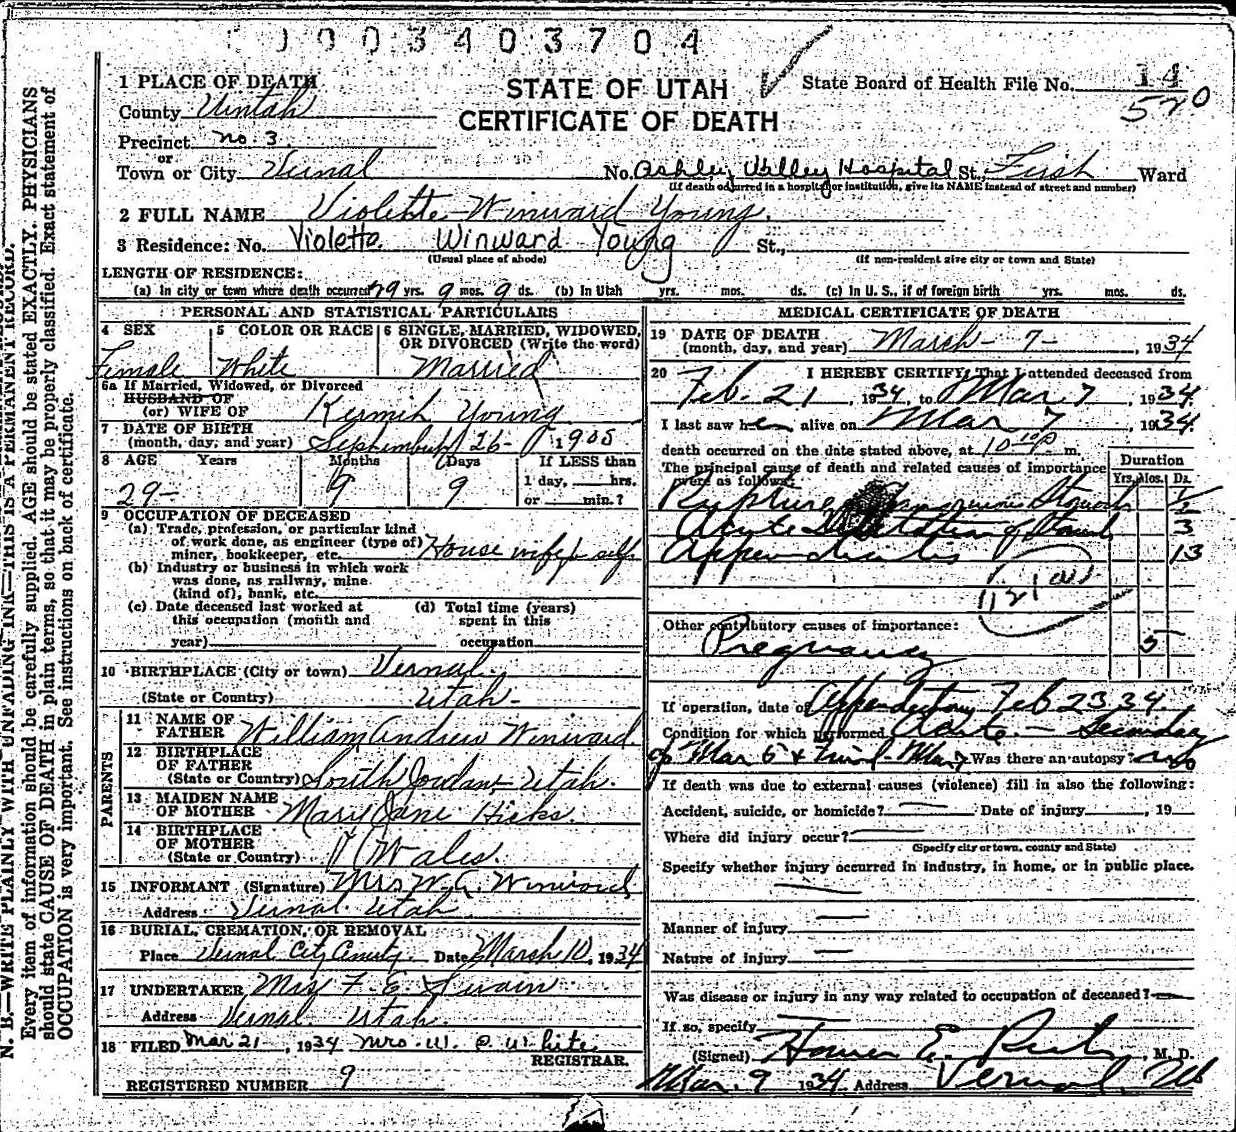 1003403704
1 PLACE OF DEATH
STATE OF UTAH
CERTIFICATE OF DEATH
State Board of Health File No. 14
520
County Uintah
Precinct no. 3
or
Town or City Vernal No. Ashley Valley Hospital St., First Ward
(If death occurred in a hospital or institution, give its NAME instead of street and number)
2 FULL NAME Violette Winward Young
3 Residence: No. Violette Winward Young St.,
(Usual place of abode) (If non-resident give city or town and State)
LENGTH OF RESIDENCE:
(a) In city or town where death occurred 29 yrs. 9 mos. 9 ds. (b) In Utah yrs. mos. ds. (c) In U. S., if of foreign birth yrs. mos. ds.
PERSONAL AND STATISTICAL PARTICULARS
4 SEX
Female
5 COLOR OR RACE
White
6 SINGLE, MARRIED, WIDOWED,
OR DIVORCED (Write the word)
Married
6a If Married, Widowed, or Divorced
HUSBAND OF
(or) WIFE OF Kermit Young
7 DATE OF BIRTH
(month, day, and year) September 26- 1905
8 AGE Years Months Days If LESS than
29- 9 9 1 day, hrs.
or min.?
9 OCCUPATION OF DECEASED
(a) Trade, profession, or particular kind
of work done, as engineer (type of)
miner, bookkeeper, etc. House wife self
(b) Industry or business in which work
was done, as railway, mine
(kind of), bank, etc.
(c) Date deceased last worked at
this occupation (month and
year)
(d) Total time (years)
spent in this
occupation
10 BIRTHPLACE (City or town) Vernal
(State or Country) Utah-
PARENTS
11 NAME OF
FATHER William Andrew Winward
12 BIRTHPLACE
OF FATHER
(State or Country) South Jordan, Utah.
13 MAIDEN NAME
OF MOTHER Mary Jane Hicks
14 BIRTHPLACE
OF MOTHER
(State or Country) Wales.
15 INFORMANT (Signature) Mrs W. A. Winward
Address Vernal Utah
16 BURIAL, CREMATION, OR REMOVAL
Place Vernal City Date March 10, 1934
17 UNDERTAKER Mrs F. E. Swain
Address Vernal Utah.
18 FILED Mar 21, 1934 Mrs. W. P. White
REGISTRAR.
REGISTERED NUMBER 9
MEDICAL CERTIFICATE OF DEATH
19 DATE OF DEATH
(month, day, and year) March - 7 -, 1934
20 I HEREBY CERTIFY, That I attended deceased from
Feb. 21, 1934, to Mar 7, 1934.
I last saw her alive on Mar 7, 1934.
death occurred on the date stated above, at 10 10 P. m.
The principal cause of death and related causes of importance
were as follows:
Duration
Yrs. Mos. Ds.
Rupture Stomach 1/2
Acute Dilatation of Stomach 3
Appendicitis 13
121
Other contributory causes of importance:
Pregnancy 5
If operation, date of Appendectomy Feb 23 34.
Condition for which performed Acute - Secondary
op Mar 6 & Mar 7 Was there an autopsy? no
If death was due to external causes (violence) fill in also the following:
Accident, suicide, or homicide? Date of injury , 19
Where did injury occur?
(Specify city or town, county and State)
Specify whether injury occurred in industry, in home, or in public place.
Manner of injury
Nature of injury
Was disease or injury in any way related to occupation of deceased?
If so, specify
(Signed) Homer E. , M. D.
Mar. 9 1934. Address Vernal, Ut
N. B.—WRITE PLAINLY WITH UNFADING INK—THIS IS A PERMANENT RECORD.
Every item of information should be carefully supplied. AGE should be stated EXACTLY. PHYSICIANS
should state CAUSE OF DEATH in plain terms, so that it may be properly classified. Exact statement of
OCCUPATION is very important. See instructions on back of certificate.